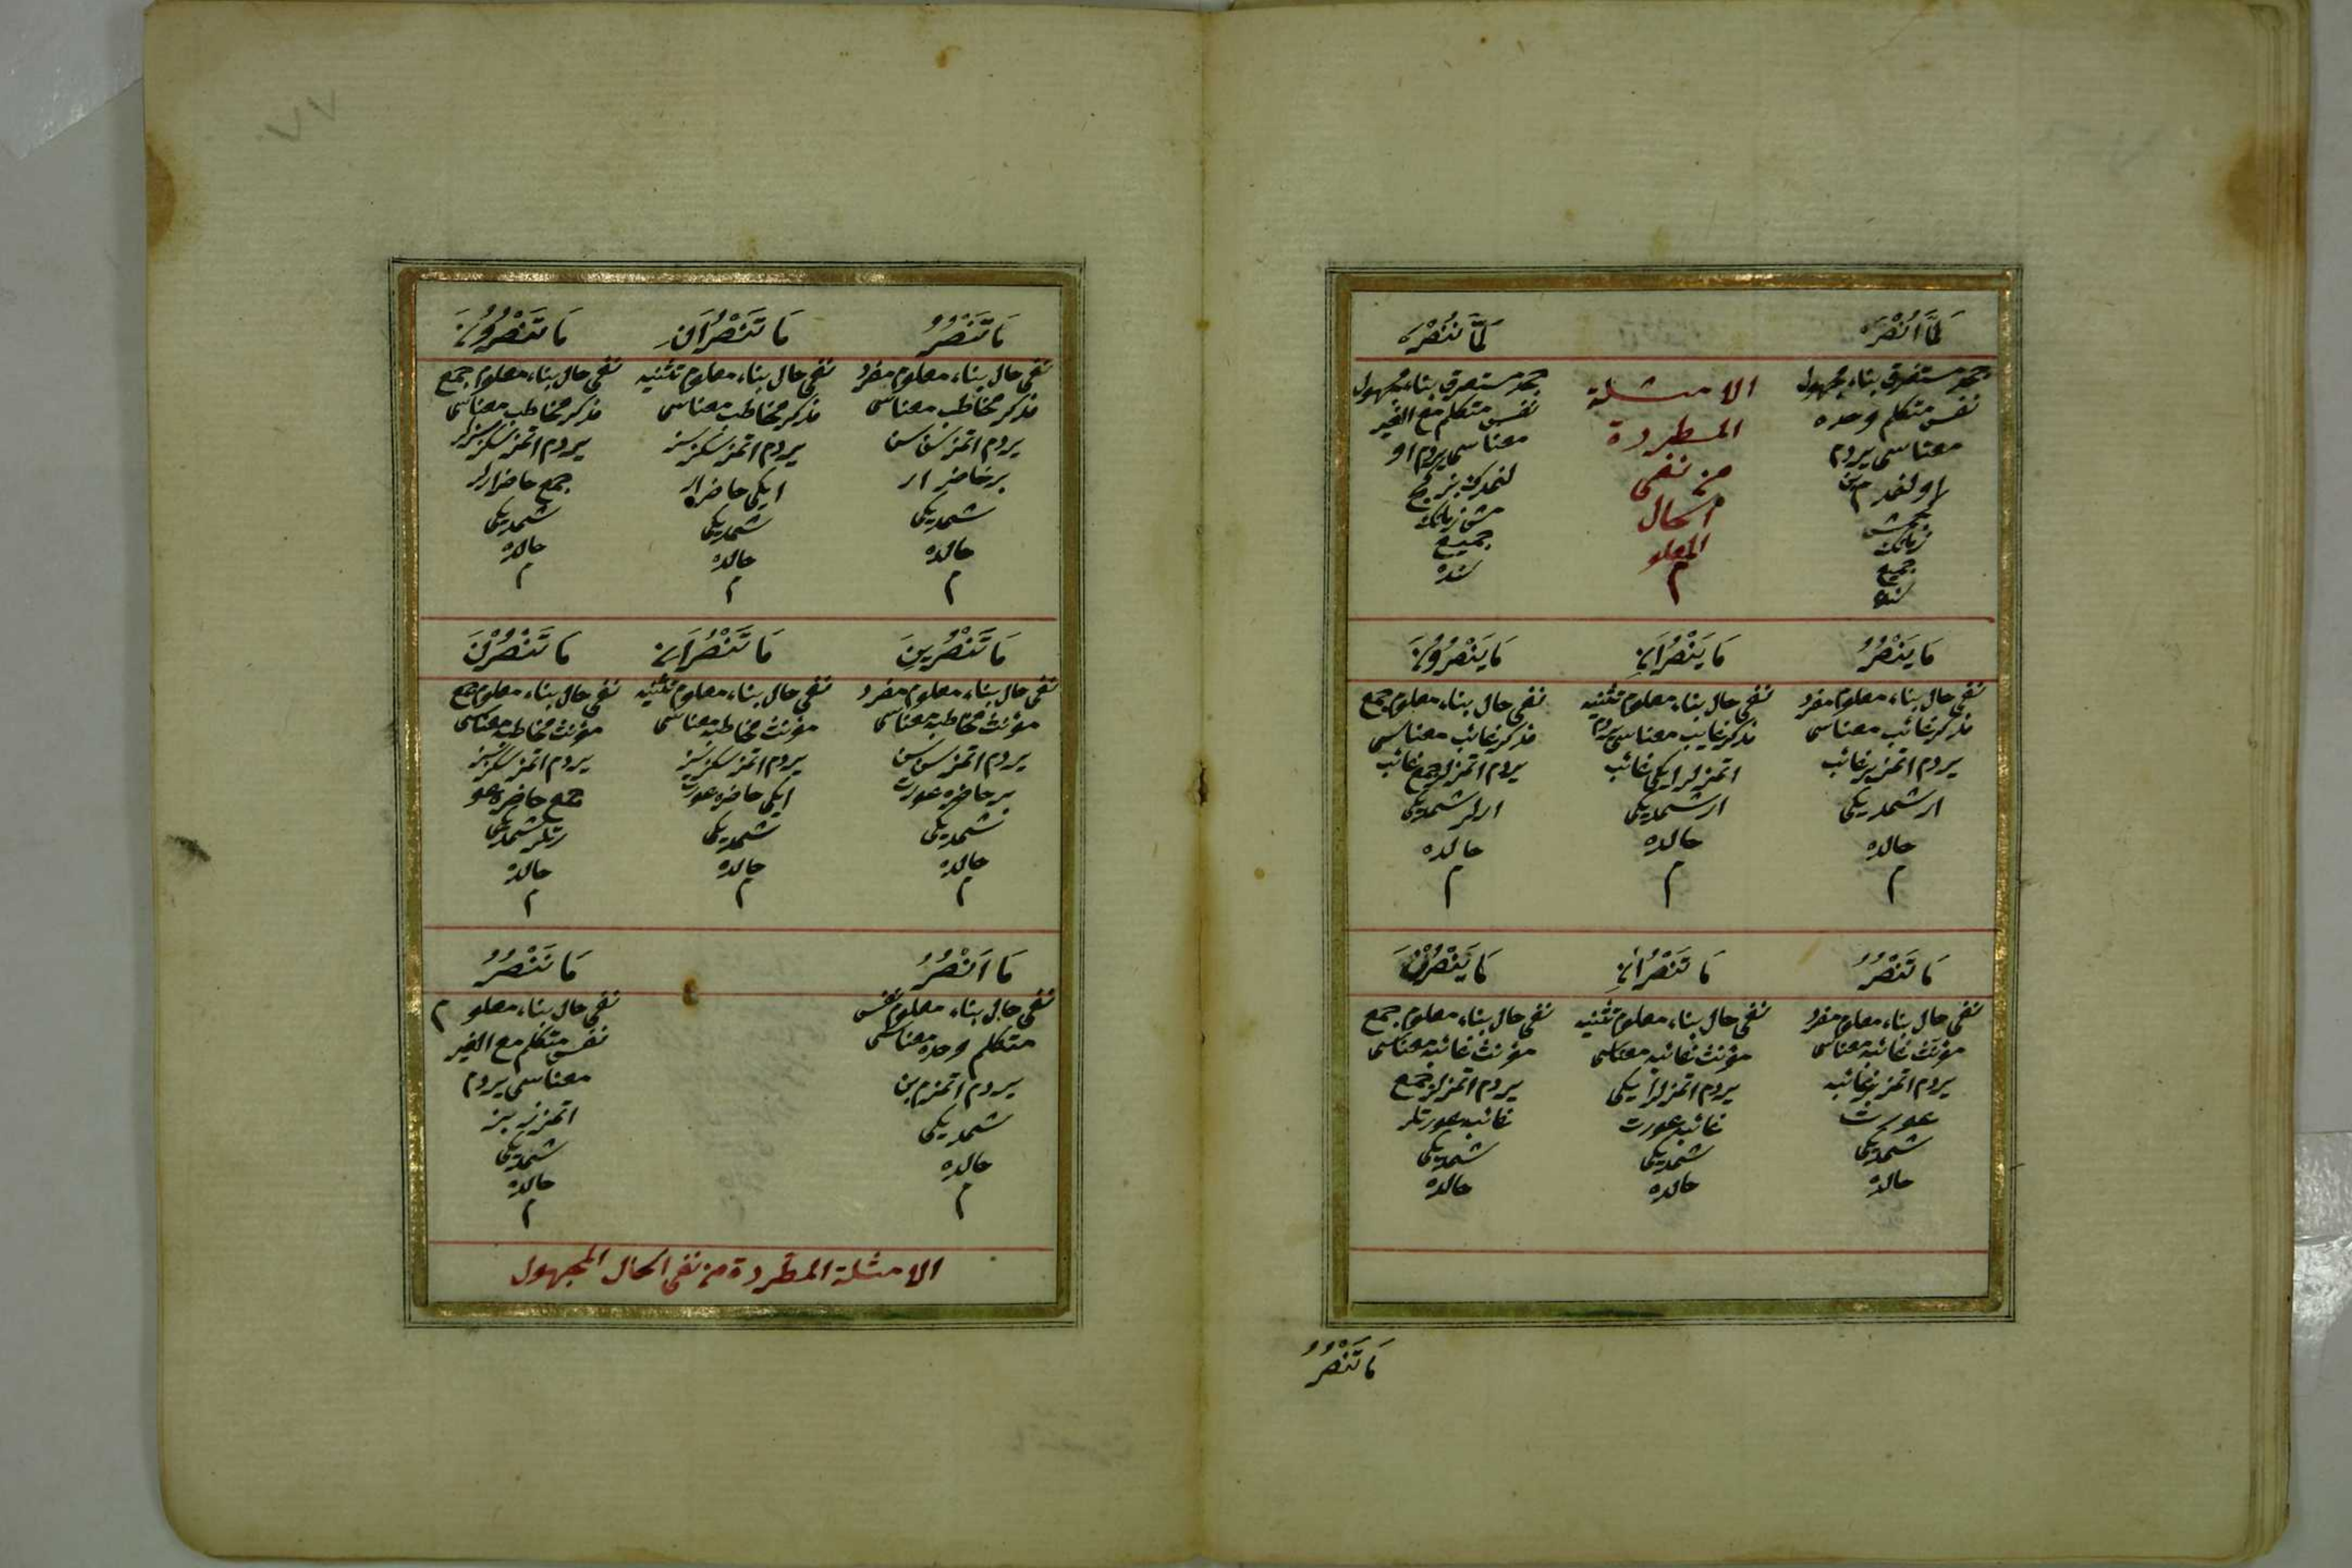 لَمَّا اُنْصَرْ
جحد مستغرق بناء مجهول
نفس متكلم وحده
معناسى يردم
اولنمدم بن
كچمش
زمانك
جميع
سنده
الامثلة
المطردة
من نفى
الحال
المعلو
م
لَمَّا نُنْصَرْ
جحد مستغرق بناء مجهول
نفس متكلم مع الغير
معناسى يردم او
لنمدك بز كچ
مش زمانك
جميع
سنده
مَا يَنْصُرُ
نفى حال بناء معلوم مفرد
مذكر غائب معناسى
يردم اتمز بر غائب
ار شمديكى
حالده
م
مَا يَنْصُرَانِ
نفى حال بناء معلوم تثنيه
مذكر غايب معناسى يردم
اتمزلر ايكى غائب
ار شمديكى
حالده
م
مَا يَنْصُرُونَ
نفى حال بناء معلوم جمع
مذكر غائب معناسى
يردم اتمزلر جمع غائب
ارلر شمديكى
حالده
م
مَا تَنْصُرُ
نفى حال بناء معلوم مفرد
مؤنث غائبه معناسى
يردم اتمز بر غائبه
عورت
شمديكى
حالده
مَا تَنْصُرَانِ
نفى حال بناء معلوم تثنيه
مؤنث غائبه معناسى
يردم اتمزلر ايكى
غائبه عورت
شمديكى
حالده
مَا يَنْصُرْنَ
نفى حال بناء معلوم جمع
مؤنث غائبه معناسى
يردم اتمزلر جمع
غائبه عورتلر
شمديكى
حالده
مَا تَنْصُرُ
مَا تَنْصُرُ
نفى حال بناء معلوم مفرد
مذكر مخاطب معناسى
يردم اتمزسن سن
بر حاضر ار
شمديكى
حالده
م
مَا تَنْصُرَانِ
نفى حال بناء معلوم تثنيه
مذكر مخاطب معناسى
يردم اتمزسكز سز
ايكى حاضر ار
شمديكى
حالده
م
مَا تَنْصُرُونَ
نفى حال بناء معلوم جمع
مذكر مخاطب معناسى
يردم اتمزسكز سزلر
جمع حاضر ارلر
شمديكى
حالده
م
مَا تَنْصُرِينَ
نفى حال بناء معلوم مفرد
مؤنث مخاطبه معناسى
يردم اتمزسن سن
بر حاضره عورت
شمديكى
حالده
م
مَا تَنْصُرَانِ
نفى حال بناء معلوم تثنيه
مؤنث مخاطبه معناسى
يردم اتمزسكز سز
ايكى حاضره عورت
شمديكى
حالده
م
مَا تَنْصُرْنَ
نفى حال بناء معلوم جمع
مؤنث مخاطبه معناسى
يردم اتمزسكز سز
جمع حاضره عو
رتلر شمديكى
حالده
م
مَا اَنْصُرُ
نفى حال بناء معلوم نفس
متكلم وحده معناسى
يردم اتمزم بن
شمديكى
حالده
م
مَا نَنْصُرُ
نفى حال بناء معلو م
نفس متكلم مع الغير
معناسى يردم
اتمزز بز
شمديكى
حالده
م
الامثلة المطردة من نفى الحال المجهول